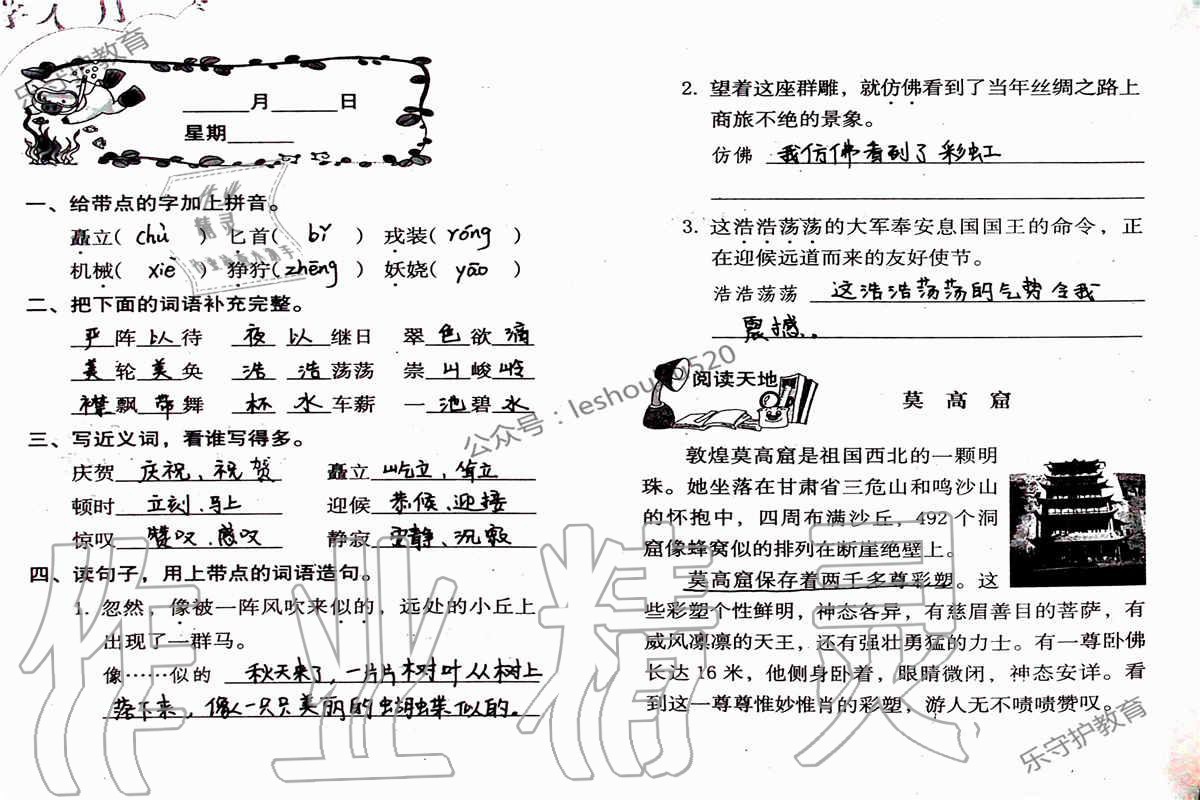 ____月____日
星期____
一、给带点的字加上拼音。
矗立( chù ) 匕首( bǐ ) 戎装( róng )
机械( xiè ) 狰狞( zhēng ) 妖娆( yāo )
二、把下面的词语补充完整。
严阵以待 夜以继日 翠色欲滴
美轮美奂 浩浩荡荡 崇山峻岭
襟飘带舞 杯水车薪 一池碧水
三、写近义词，看谁写得多。
庆贺 庆祝、祝贺 矗立 屹立、耸立
顿时 立刻、马上 迎候 恭候、迎接
惊叹 赞叹、感叹 静寂 安静、沉寂
四、读句子，用上带点的词语造句。
1. 忽然，像被一阵风吹来似的，远处的小丘上
出现了一群马。
像……似的 秋天来了，一片片树叶从树上
落下来，像一只只美丽的蝴蝶似的。
2. 望着这座群雕，就仿佛看到了当年丝绸之路上
商旅不绝的景象。
仿佛 我仿佛看到了彩虹
3. 这浩浩荡荡的大军奉安息国国王的命令，正
在迎候远道而来的友好使节。
浩浩荡荡 这浩浩荡荡的气势令我
震撼。
阅读天地
莫高窟
敦煌莫高窟是祖国西北的一颗明
珠。她坐落在甘肃省三危山和鸣沙山
的怀抱中，四周布满沙丘，492个洞
窟像蜂窝似的排列在断崖绝壁上。
莫高窟保存着两千多尊彩塑。这
些彩塑个性鲜明，神态各异，有慈眉善目的菩萨，有
威风凛凛的天王，还有强壮勇猛的力士。有一尊卧佛
长达16米，他侧身卧着，眼睛微闭，神态安详。看
到这一尊尊惟妙惟肖的彩塑，游人无不啧啧赞叹。
乐守护教育
作业
精灵
公众号：leshouhu520
作业精灵
乐守护教育